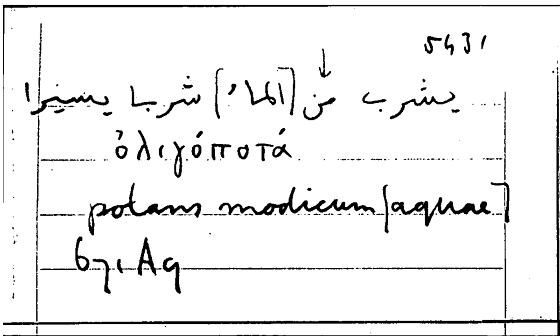 5431
يشرب من [الماء] شربا يسيرا
ὀλιγόποτά
potans modicum [aquae]
671 Aq